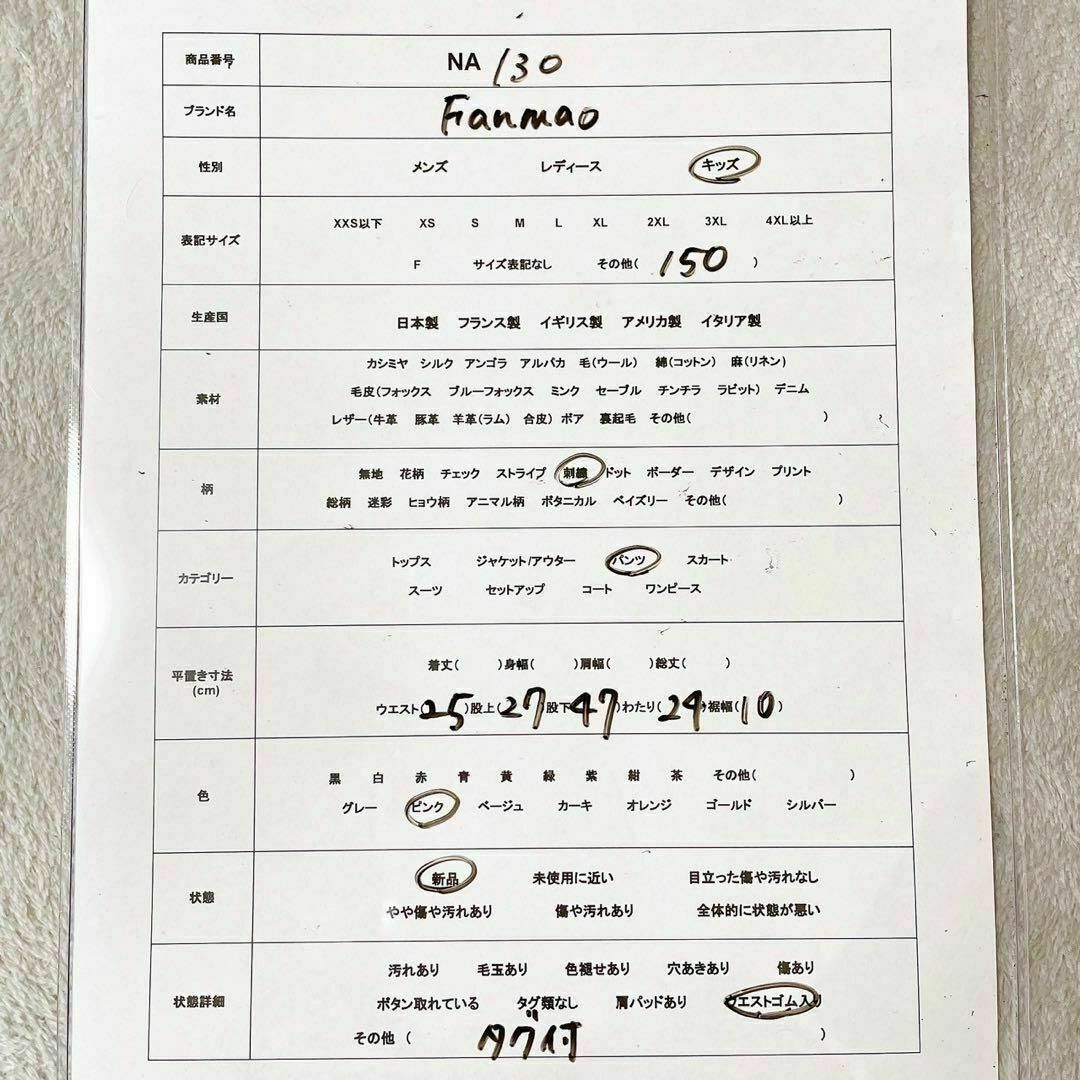 商品番号 NA 130
ブランド名 Fanmao
性別 メンズ レディース キッズ
XXS以下 XS S M L XL 2XL 3XL 4XL以上
表記サイズ
F サイズ表記なし その他( 150 )
生産国 日本製 フランス製 イギリス製 アメリカ製 イタリア製
カシミヤ シルク アンゴラ アルパカ 毛(ウール) 綿(コットン) 麻(リネン)
素材 毛皮(フォックス ブルーフォックス ミンク セーブル チンチラ ラビット) デニム
レザー(牛革 豚革 羊革(ラム) 合皮) ボア 裏起毛 その他( )
柄 無地 花柄 チェック ストライプ 刺繍 ドット ボーダー デザイン プリント
総柄 迷彩 ヒョウ柄 アニマル柄 ボタニカル ペイズリー その他( )
トップス ジャケット/アウター パンツ スカート
カテゴリー
スーツ セットアップ コート ワンピース
着丈( )身幅( )肩幅( )総丈( )
平置き寸法
(cm)
ウエスト( 25 )股上( 27 )股下( 47 )わたり( 24 )裾幅( 10 )
黒 白 赤 青 黄 緑 紫 紺 茶 その他( )
色
グレー ピンク ベージュ カーキ オレンジ ゴールド シルバー
新品 未使用に近い 目立った傷や汚れなし
状態
やや傷や汚れあり 傷や汚れあり 全体的に状態が悪い
汚れあり 毛玉あり 色褪せあり 穴あきあり 傷あり
状態詳細 ボタン取れている タグ類なし 肩パッドあり ウエストゴム入り
その他 ( タグ付 )